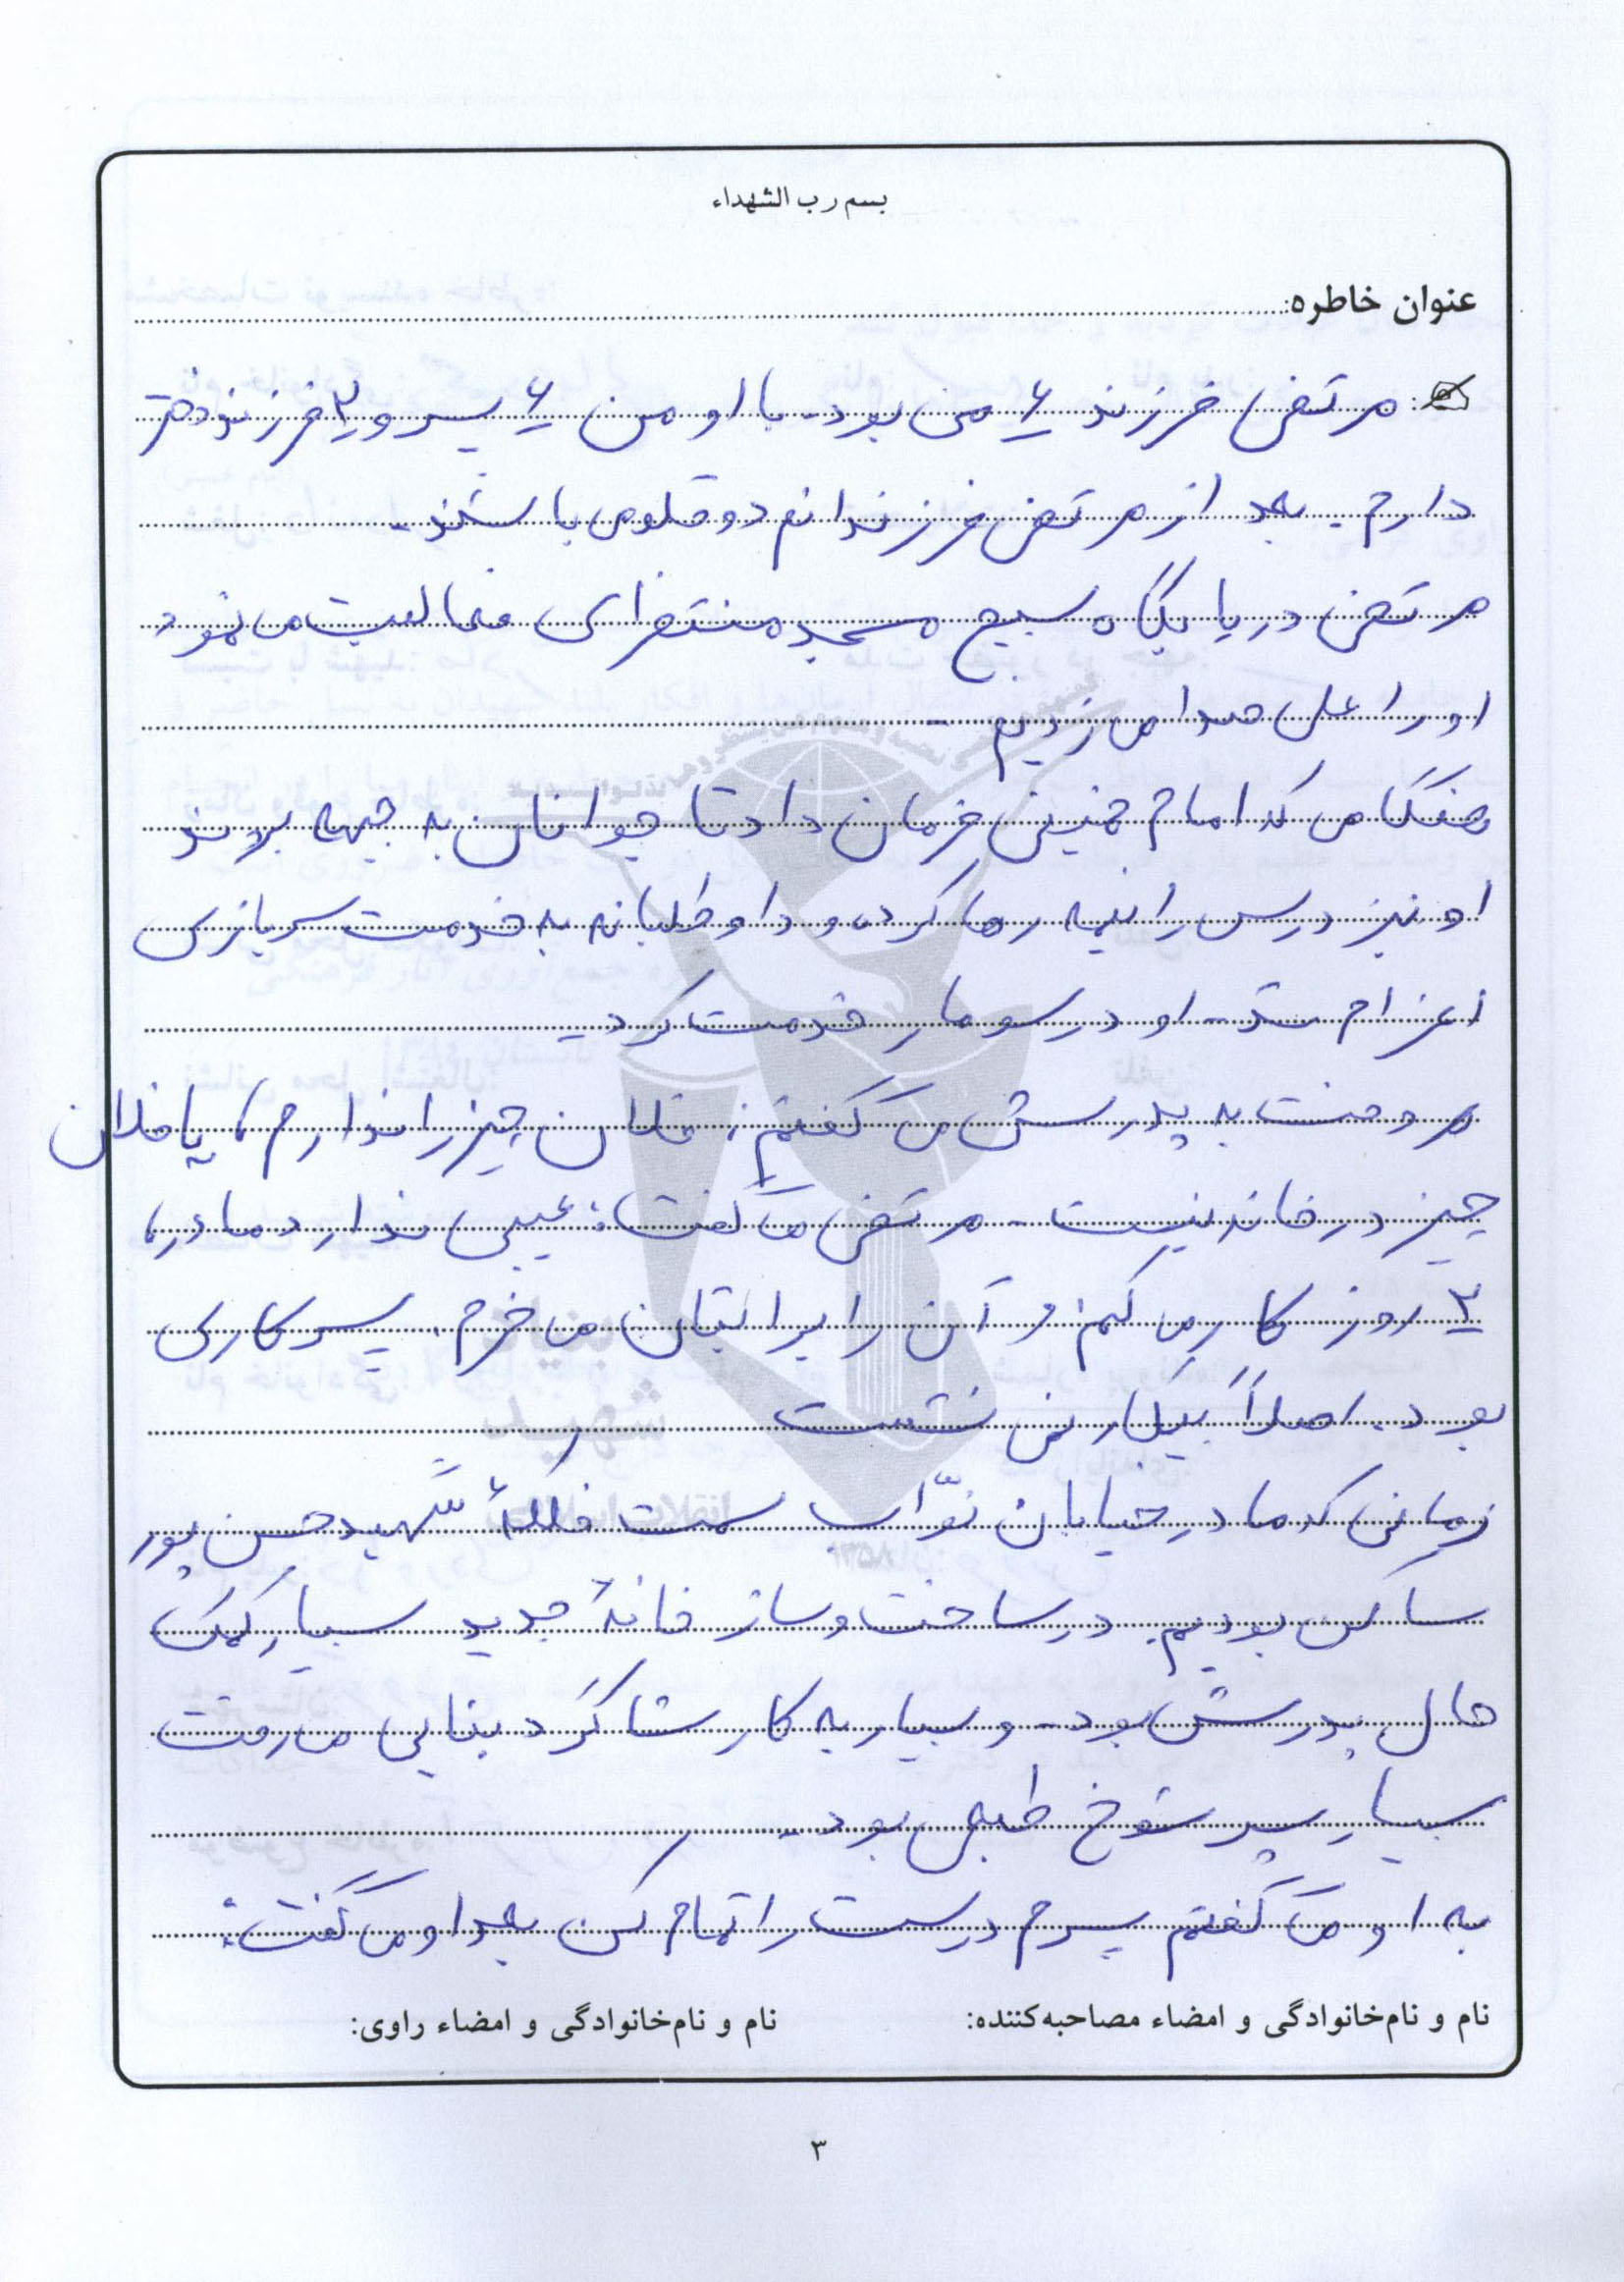 بسم رب الشهداء
عنوان خاطره:
مرتضی فرزند ۶ من بود. با او من ۶ پسر و ۲ فرزند دختر
دارم. بعد از مرتضی فرزندانم دوقلو می باشند.
مرتضی در پایگاه بسیج مسجد منتظرای فعالیت می نمود
او را علی صدا می زدیم.
هنگامی که امام خمینی فرمان داد تا جوانان به جبهه بروند
او نیز درس را نیمه رها کرده و داوطلبانه به خدمت سربازی
اعزام شد. او در سومار خدمت کرد.
هر وقت به پدرش می گفتم: فلان چیز را ندارم، یا فلان
چیز در خانه نیست. مرتضی می گفت: عیبی ندارد مادر،
۲ روز کار می کنم و آن را برایتان می خرم. پسر کاری
بود. اصلاً بیکار نمی نشست
زمانی که ما در خیابان نوّاب سمت فلکهٔ شهید حسن پور
ساکن بودیم. در ساخت و ساز خانهٔ جدید بسیار کمک
حال پدرش بود. و بسیار به کار شاگرد بنایی می رفت
بسیار پسر شوخ طبعی بود.
به او می گفتم پسرم درست را تمام کن بعد او می گفت:
نام و نام‌خانوادگی و امضاء مصاحبه‌کننده:
نام و نام‌خانوادگی و امضاء راوی:
۳